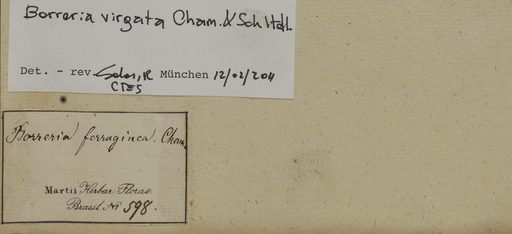 Borreria virgata Cham. & Schltdl.
Det. - rev. Salas, R München 12/02/2011
CTES
Borreria ferruginea. Cham.
Martii Herbar. Florae
Brasil. No 598.